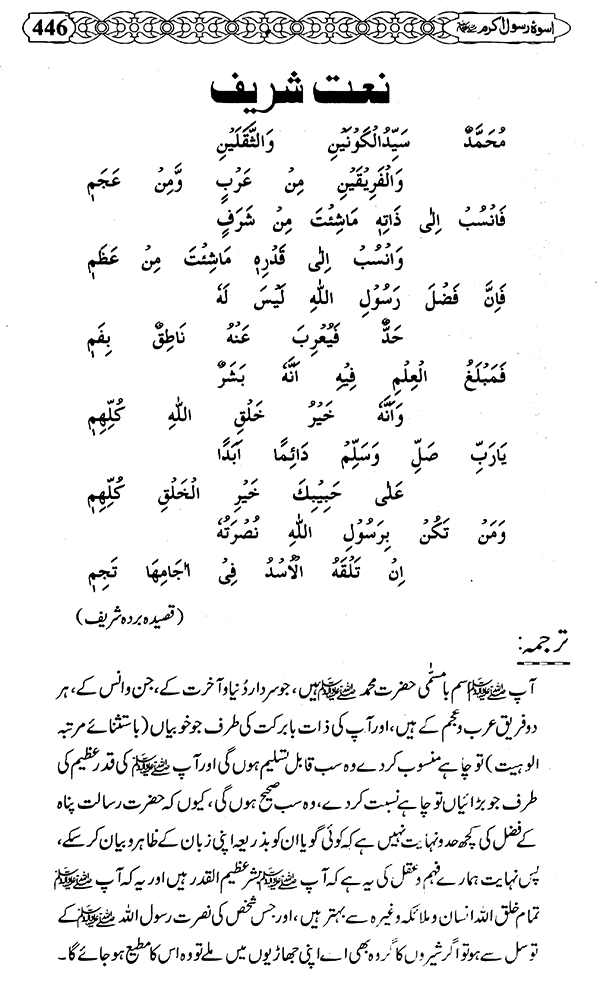 446
اسوۂ رسول اکرم ﷺ
نعت شریف
مُحَمَّدٌ سَیِّدُ الْکَوْنَیْنِ وَالثَّقَلَیْنِ
وَالْفَرِیْقَیْنِ مِنْ عَرَبٍ وَّمِنْ عَجَمٖ
فَانْسُبْ اِلٰی ذَاتِهٖ مَاشِئْتَ مِنْ شَرَفٍ
وَانْسُبْ اِلٰی قَدْرِهٖ مَاشِئْتَ مِنْ عَظَمٖ
فَاِنَّ فَضْلَ رَسُوْلِ اللّٰهِ لَیْسَ لَهٗ
حَدٌّ فَیُعْرِبَ عَنْهُ نَاطِقٌ بِفَمٖ
فَمَبْلَغُ الْعِلْمِ فِیْهِ اَنَّهٗ بَشَرٌ
وَاَنَّهٗ خَیْرُ خَلْقِ اللّٰهِ کُلِّهِمٖ
یَارَبِّ صَلِّ وَسَلِّمْ دَائِمًا اَبَدًا
عَلٰی حَبِیْبِكَ خَیْرِ الْخَلْقِ کُلِّهِمٖ
وَمَنْ تَکُنْ بِرَسُوْلِ اللّٰهِ نُصْرَتُهٗ
اِنْ تَلْقَهُ الْاُسْدُ فِیْ اٰجَامِهَا تَجِمٖ
(قصیدہ بردہ شریف)
ترجمہ:
آپ ﷺ اسم بامسمٰی حضرت محمد ﷺ ہیں، جو سردار دُنیا و آخرت کے، جن و انس کے، ہر
دو فریق عرب و عجم کے ہیں، اور آپ کی ذات بابرکت کی طرف جو خوبیاں (باستثنائے مرتبہ
الوہیت) تو چاہے منسوب کر دے وہ سب قابل تسلیم ہوں گی اور آپ ﷺ کی قدر عظیم کی
طرف جو بڑائیاں تو چاہے نسبت کر دے، وہ سب صحیح ہوں گی، کیوں کہ حضرت رسالت پناہ
کے فضل کی کچھ حد و نہایت نہیں ہے کہ کوئی گویا ان کو بذریعہ اپنی زبان کے ظاہر و بیان کر سکے،
پس نہایت ہمارے فہم و عقل کی یہ ہے کہ آپ ﷺ بشر عظیم القدر ہیں اور یہ کہ آپ ﷺ
تمام خلق اللہ انسان و ملائکہ وغیرہ سے بہتر ہیں، اور جس شخص کی نصرت رسول اللہ ﷺ کے
توسل سے ہو تو اگر شیروں کا گروہ بھی اسے اپنی جھاڑیوں میں ملے تو وہ اس کا مطیع ہو جائے گا۔